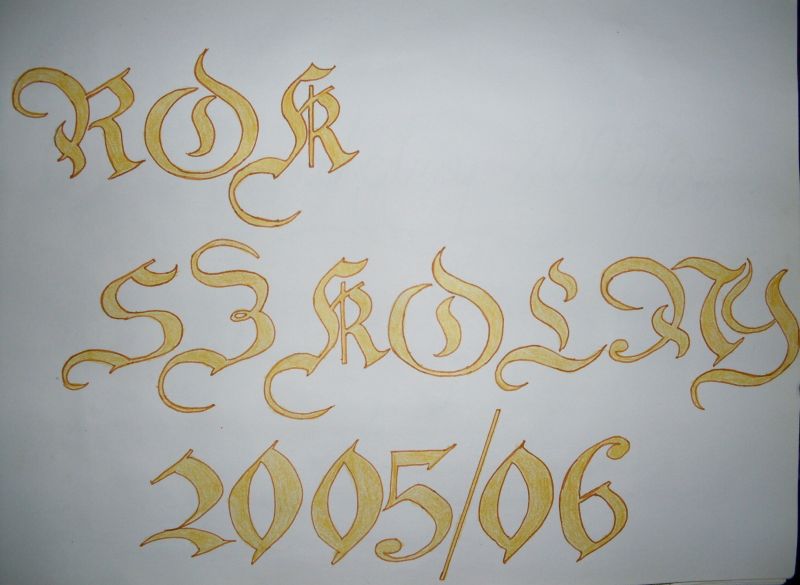 ROK
SZKOLNY
2005/06